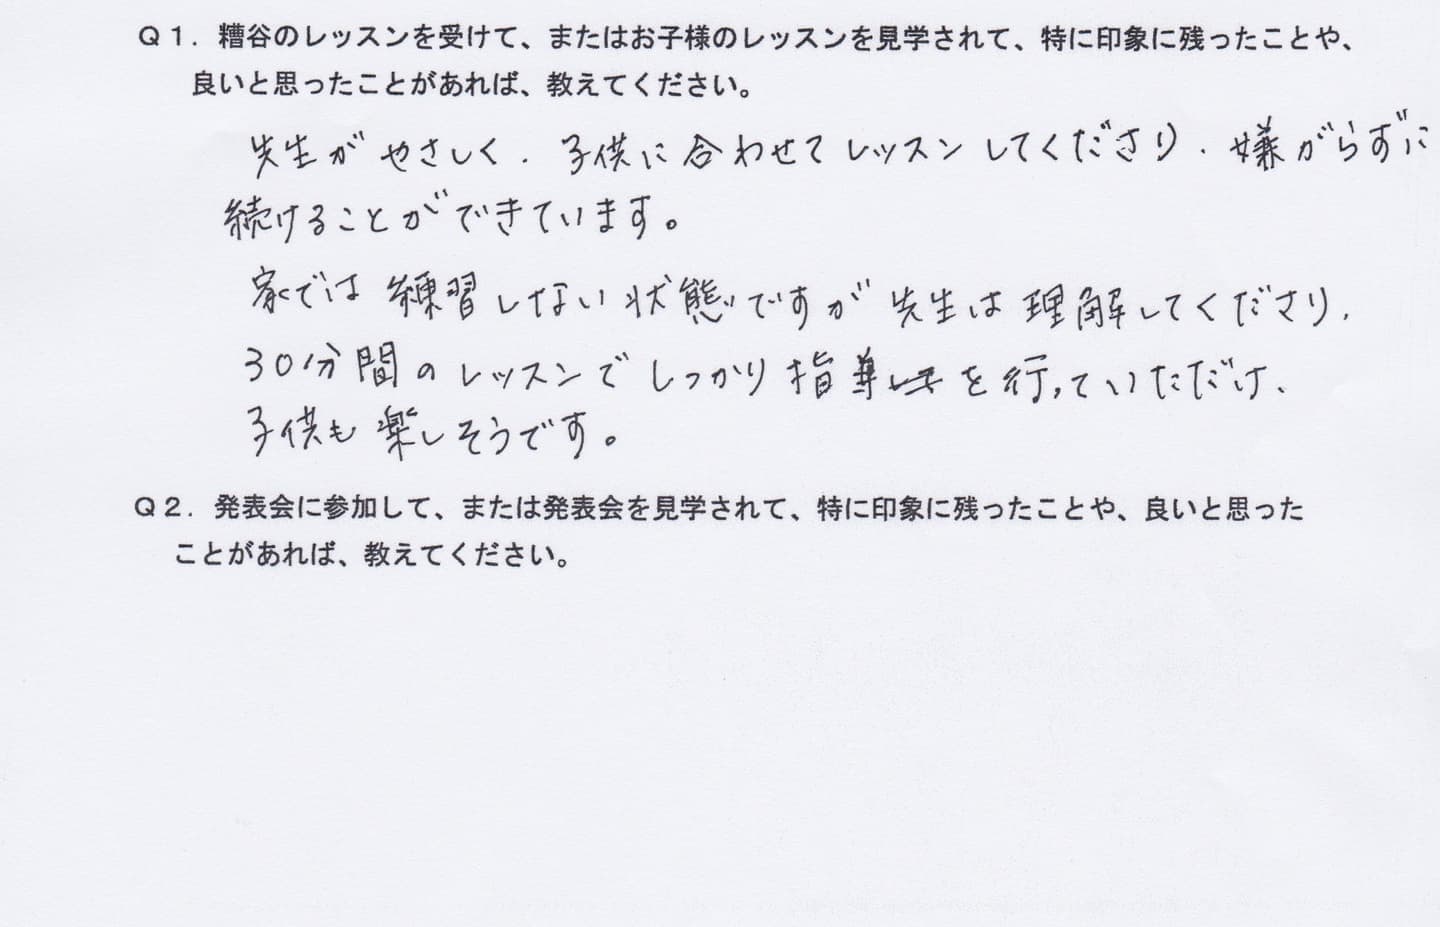 Q1. 糟谷のレッスンを受けて、またはお子様のレッスンを見学されて、特に印象に残ったことや、
良いと思ったことがあれば、教えてください。
先生がやさしく、子供に合わせてレッスンしてくださり、嫌がらずに
続けることができています。
家では練習しない状態ですが先生は理解してくださり、
30分間のレッスンでしっかり指導を行っていただけ、
子供も楽しそうです。
Q2. 発表会に参加して、または発表会を見学されて、特に印象に残ったことや、良いと思った
ことがあれば、教えてください。